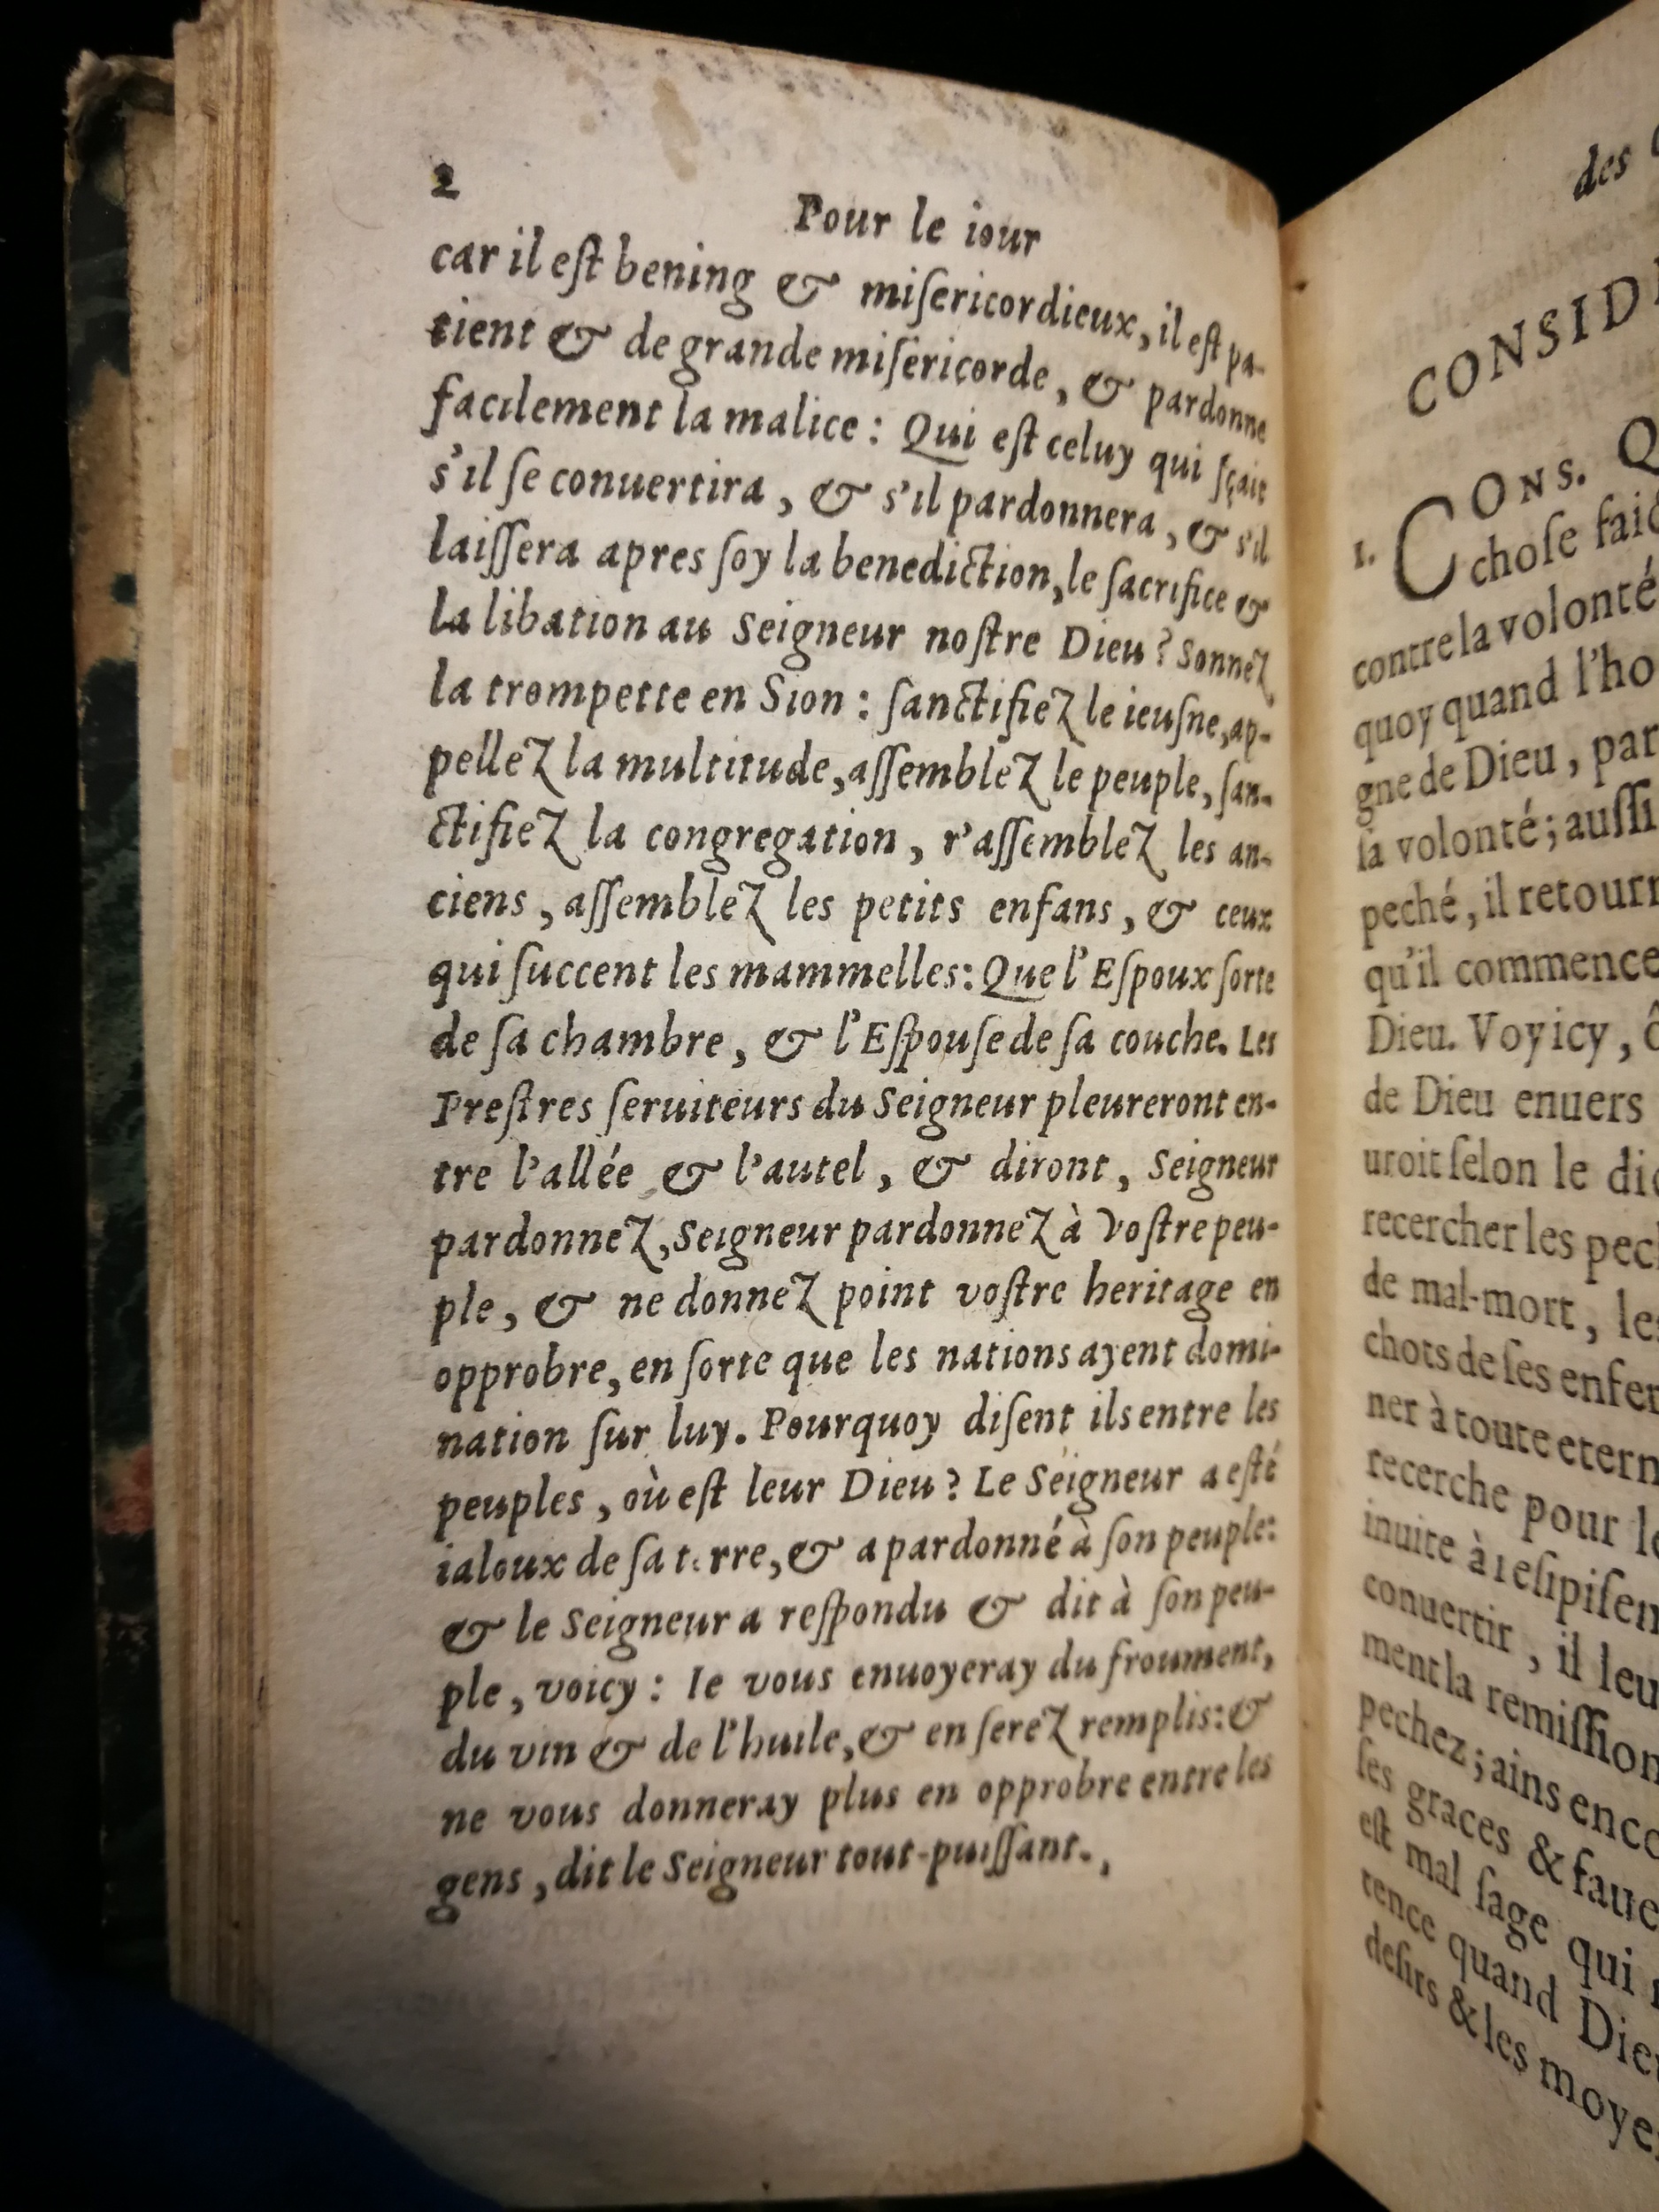 2
Pour le iour
car il eſt bening & miſericordieux, il eſt pa-
tient & de grande miſericorde, & pardonne
facilement la malice : Qui eſt celuy qui ſçait
s'il ſe conuertira, & s'il pardonnera, & s'il
laiſſera apres ſoy la benediction, le ſacrifice &
la libation au Seigneur noſtre Dieu ? Sonnez
la trompette en Sion : ſanctifiez le ieuſne, ap-
pellez la multitude, aſſemblez le peuple, ſan-
ctifiez la congregation, r'aſſemblez les an-
ciens, aſſemblez les petits enfans, & ceux
qui ſuccent les mammelles: Que l'Eſpoux ſorte
de ſa chambre, & l'Eſpouſe de ſa couche. Les
Preſtres ſeruiteurs du Seigneur pleureront en-
tre l'allée & l'autel, & diront, Seigneur
pardonnez, Seigneur pardonnez à voſtre peu-
ple, & ne donnez point voſtre heritage en
opprobre, en ſorte que les nations ayent domi-
nation ſur luy. Pourquoy diſent ils entre les
peuples, où eſt leur Dieu ? Le Seigneur a eſté
ialoux de ſa terre, & a pardonné à ſon peuple:
& le Seigneur a reſpondu & dit à ſon peu-
ple, voicy : Ie vous enuoyeray du froument,
du vin & de l'huile, & en ſerez remplis: &
ne vous donneray plus en opprobre entre les
gens, dit le Seigneur tout-puiſſant.
des
CONSID
1. CONS. Q
choſe faic
contre la volonté
quoy quand l'ho
gne de Dieu, par
ſa volonté; auſſi
peché, il retourn
qu'il commence
Dieu. Voy icy, ô
de Dieu enuers
uroit ſelon le dic
recercher les pec
de mal-mort, les
chots de ſes enfer
ner à toute etern
recerche pour le
inuite à reſipiſen
conuertir, il leu
ment la remiſſion
pechez; ains enco
ſes graces & faue
eſt mal ſage qui
tence quand Die
deſirs & les moye